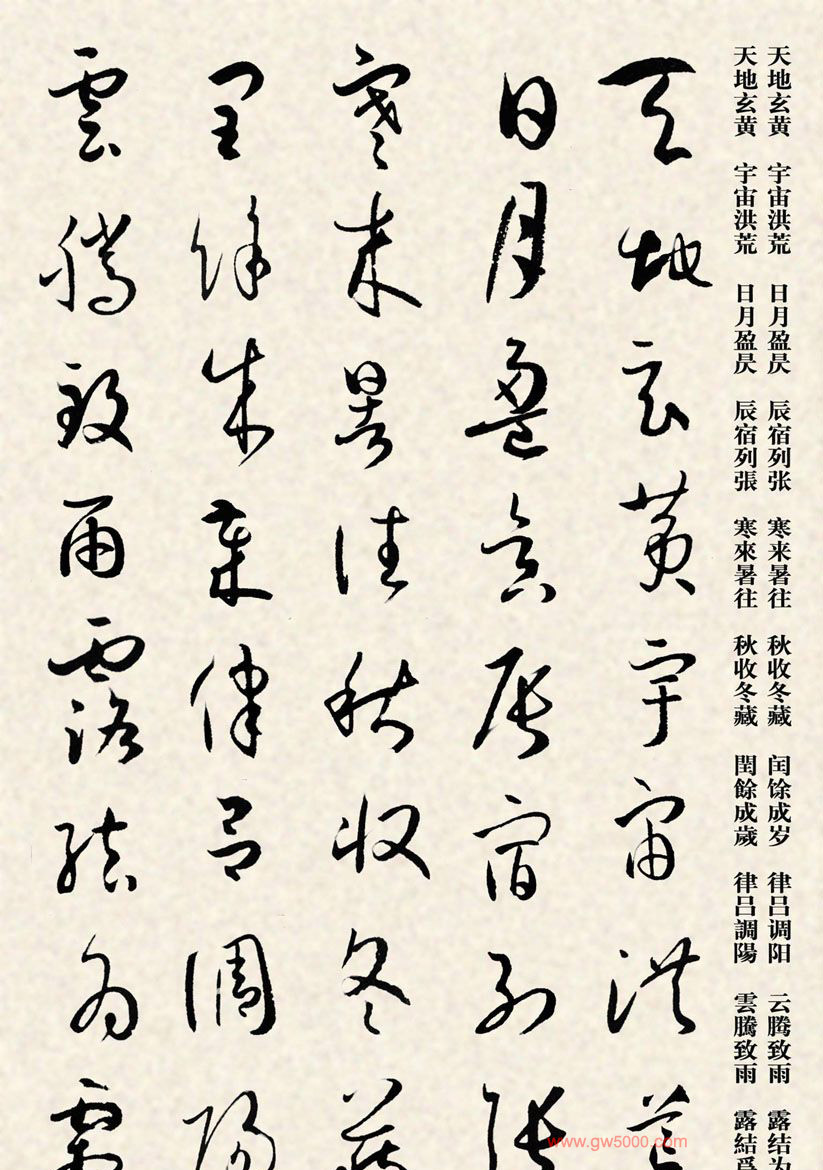 天地玄黄 宇宙洪荒 日月盈昃 辰宿列张 寒来暑往 秋收冬藏 闰馀成岁 律吕调阳 云腾致雨 露结为
天地玄黄 宇宙洪荒 日月盈昃 辰宿列張 寒來暑往 秋收冬藏 閏餘成歲 律吕調陽 雲騰致雨 露結爲
天地玄黄宇宙洪荒
日月盈昃辰宿列張
寒来暑往秋收冬藏
閏餘成歲律吕調陽
雲騰致雨露結為霜
www.gw5000.com